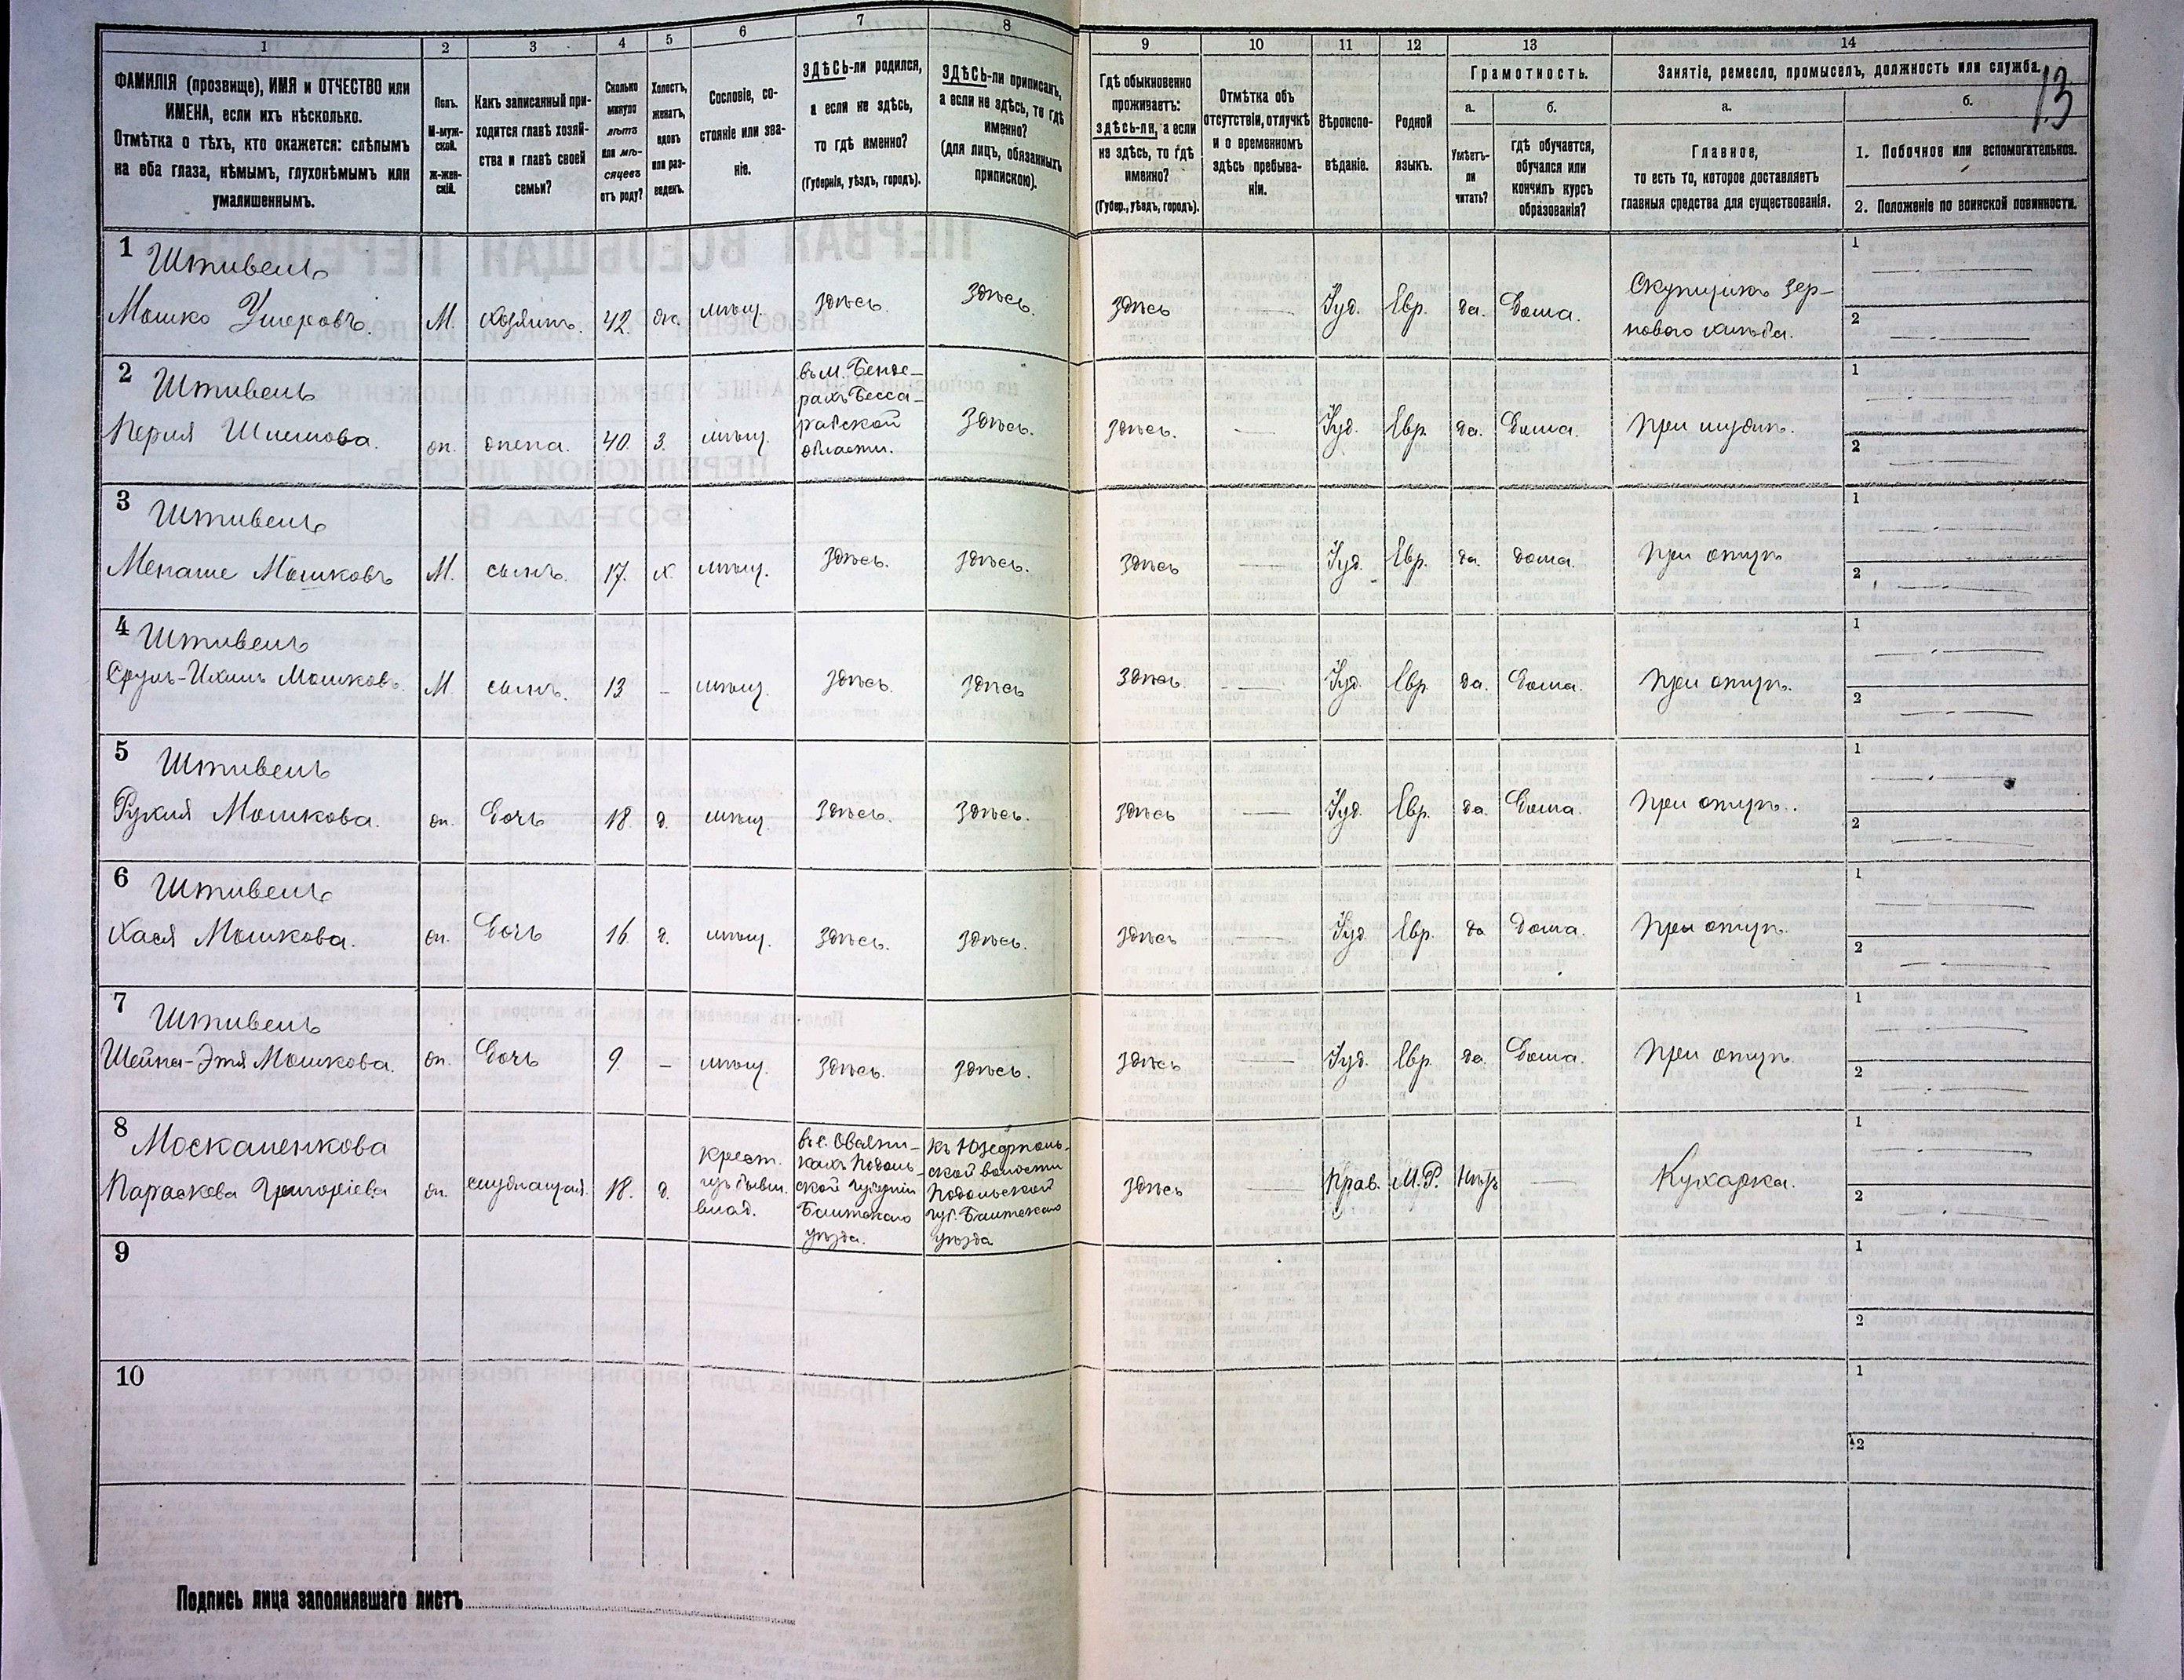 1 2 3 4 5 6 7 8 9 10 11 12 13 14
13
ФАМИЛІЯ (прозвище), ИМЯ и ОТЧЕСТВО или
ИМЕНА, если ихъ нѣсколько.
Отмѣтка о тѣхъ, кто окажется: слѣпымъ
на оба глаза, нѣмымъ, глухонѣмымъ или
умалишеннымъ.
Полъ.
М-муж-
ской.
ж-жен-
скій.
Какъ записанный при-
ходится главѣ хозяй-
ства и главѣ своей
семьи?
Сколько
минуло
лѣтъ
или мѣ-
сяцевъ
отъ роду?
Холостъ,
женатъ,
вдовъ
или раз-
веденъ.
Сословіе, со-
стояніе или зва-
ніе.
ЗДѢСЬ-ли родился,
а если не здѣсь,
то гдѣ именно?
(Губернія, уѣздъ, городъ).
ЗДѢСЬ-ли приписанъ,
а если не здѣсь, то гдѣ
именно?
(для лицъ, обязанныхъ
припискою).
Гдѣ обыкновенно
проживаетъ:
здѣсь-ли, а если
не здѣсь, то гдѣ
именно?
(Губер., уѣздъ, городъ).
Отмѣтка объ
отсутствіи, отлучкѣ
и о временномъ
здѣсь пребыва-
ніи.
Вѣроиспо-
вѣданіе.
Родной
языкъ.
Грамотность.
а.
Умѣетъ-
ли
читать?
б.
гдѣ обучается,
обучался или
кончилъ курсъ
образованія?
Занятіе, ремесло, промыселъ, должность или служба.
а.
Главное,
то есть то, которое доставляетъ
главныя средства для существованія.
б.
1. Побочное или вспомогательное.
2. Положеніе по воинской повинности.
1 Штивель
Мошко Ушеровъ. М. хозяинъ. 42. ж. мѣщ. здѣсь. здѣсь. здѣсь — Іуд. Евр. да. Дома. Скупщикъ зер-
нового хлѣба.
1 —
2 —
2 Штивель
Перля Шлемова. ж. жена. 40. з. мѣщ. въ м. Бенде-
рахъ Бесса-
рабской
области.
здѣсь. здѣсь. — Іуд. Евр. да. Дома. При мужѣ.
1 —
2 —
3 Штивель
Менаше Мошковъ М. сынъ. 17. х. мѣщ. здѣсь. здѣсь. здѣсь — Іуд. Евр. да. дома. При отцѣ
1 —
2 —
4 Штивель
Сруль-Ихиль Мошковъ. М. сынъ. 13 - мѣщ. здѣсь. здѣсь здѣсь. — Іуд. Евр. да. Дома. При отцѣ.
1 —
2 —
5 Штивель
Рухля Мошкова. ж. Дочь 18. д. мѣщ. здѣсь. здѣсь. здѣсь — Іуд. Евр. да. Дома. При отцѣ.
1 —
2 —
6 Штивель
Хася Мошкова. ж. Дочь 16. д. мѣщ. здѣсь. здѣсь. здѣсь — Іуд. Евр. да Дома. При отцѣ.
1 —
2 —
7 Штивель
Шейна-Этя Мошкова. ж. Дочь 9. - мѣщ. здѣсь. здѣсь. здѣсь — Іуд. Евр. да. Дома. При отцѣ.
1 —
2 —
8 Москаленкова
Параскева Григоріева ж. служащая. 18. д. крест.
изъ бывш.
влад.
Подоль-
ской губерніи
Балтскаго
уѣзда.
ской волости
Подольской
губ. Балтскаго
уѣзда
здѣсь — Прав. М.Р. Нѣтъ — Кухарка.
1 —
2 —
9
1
2
10
1
2
Подпись лица заполнявшаго листъ